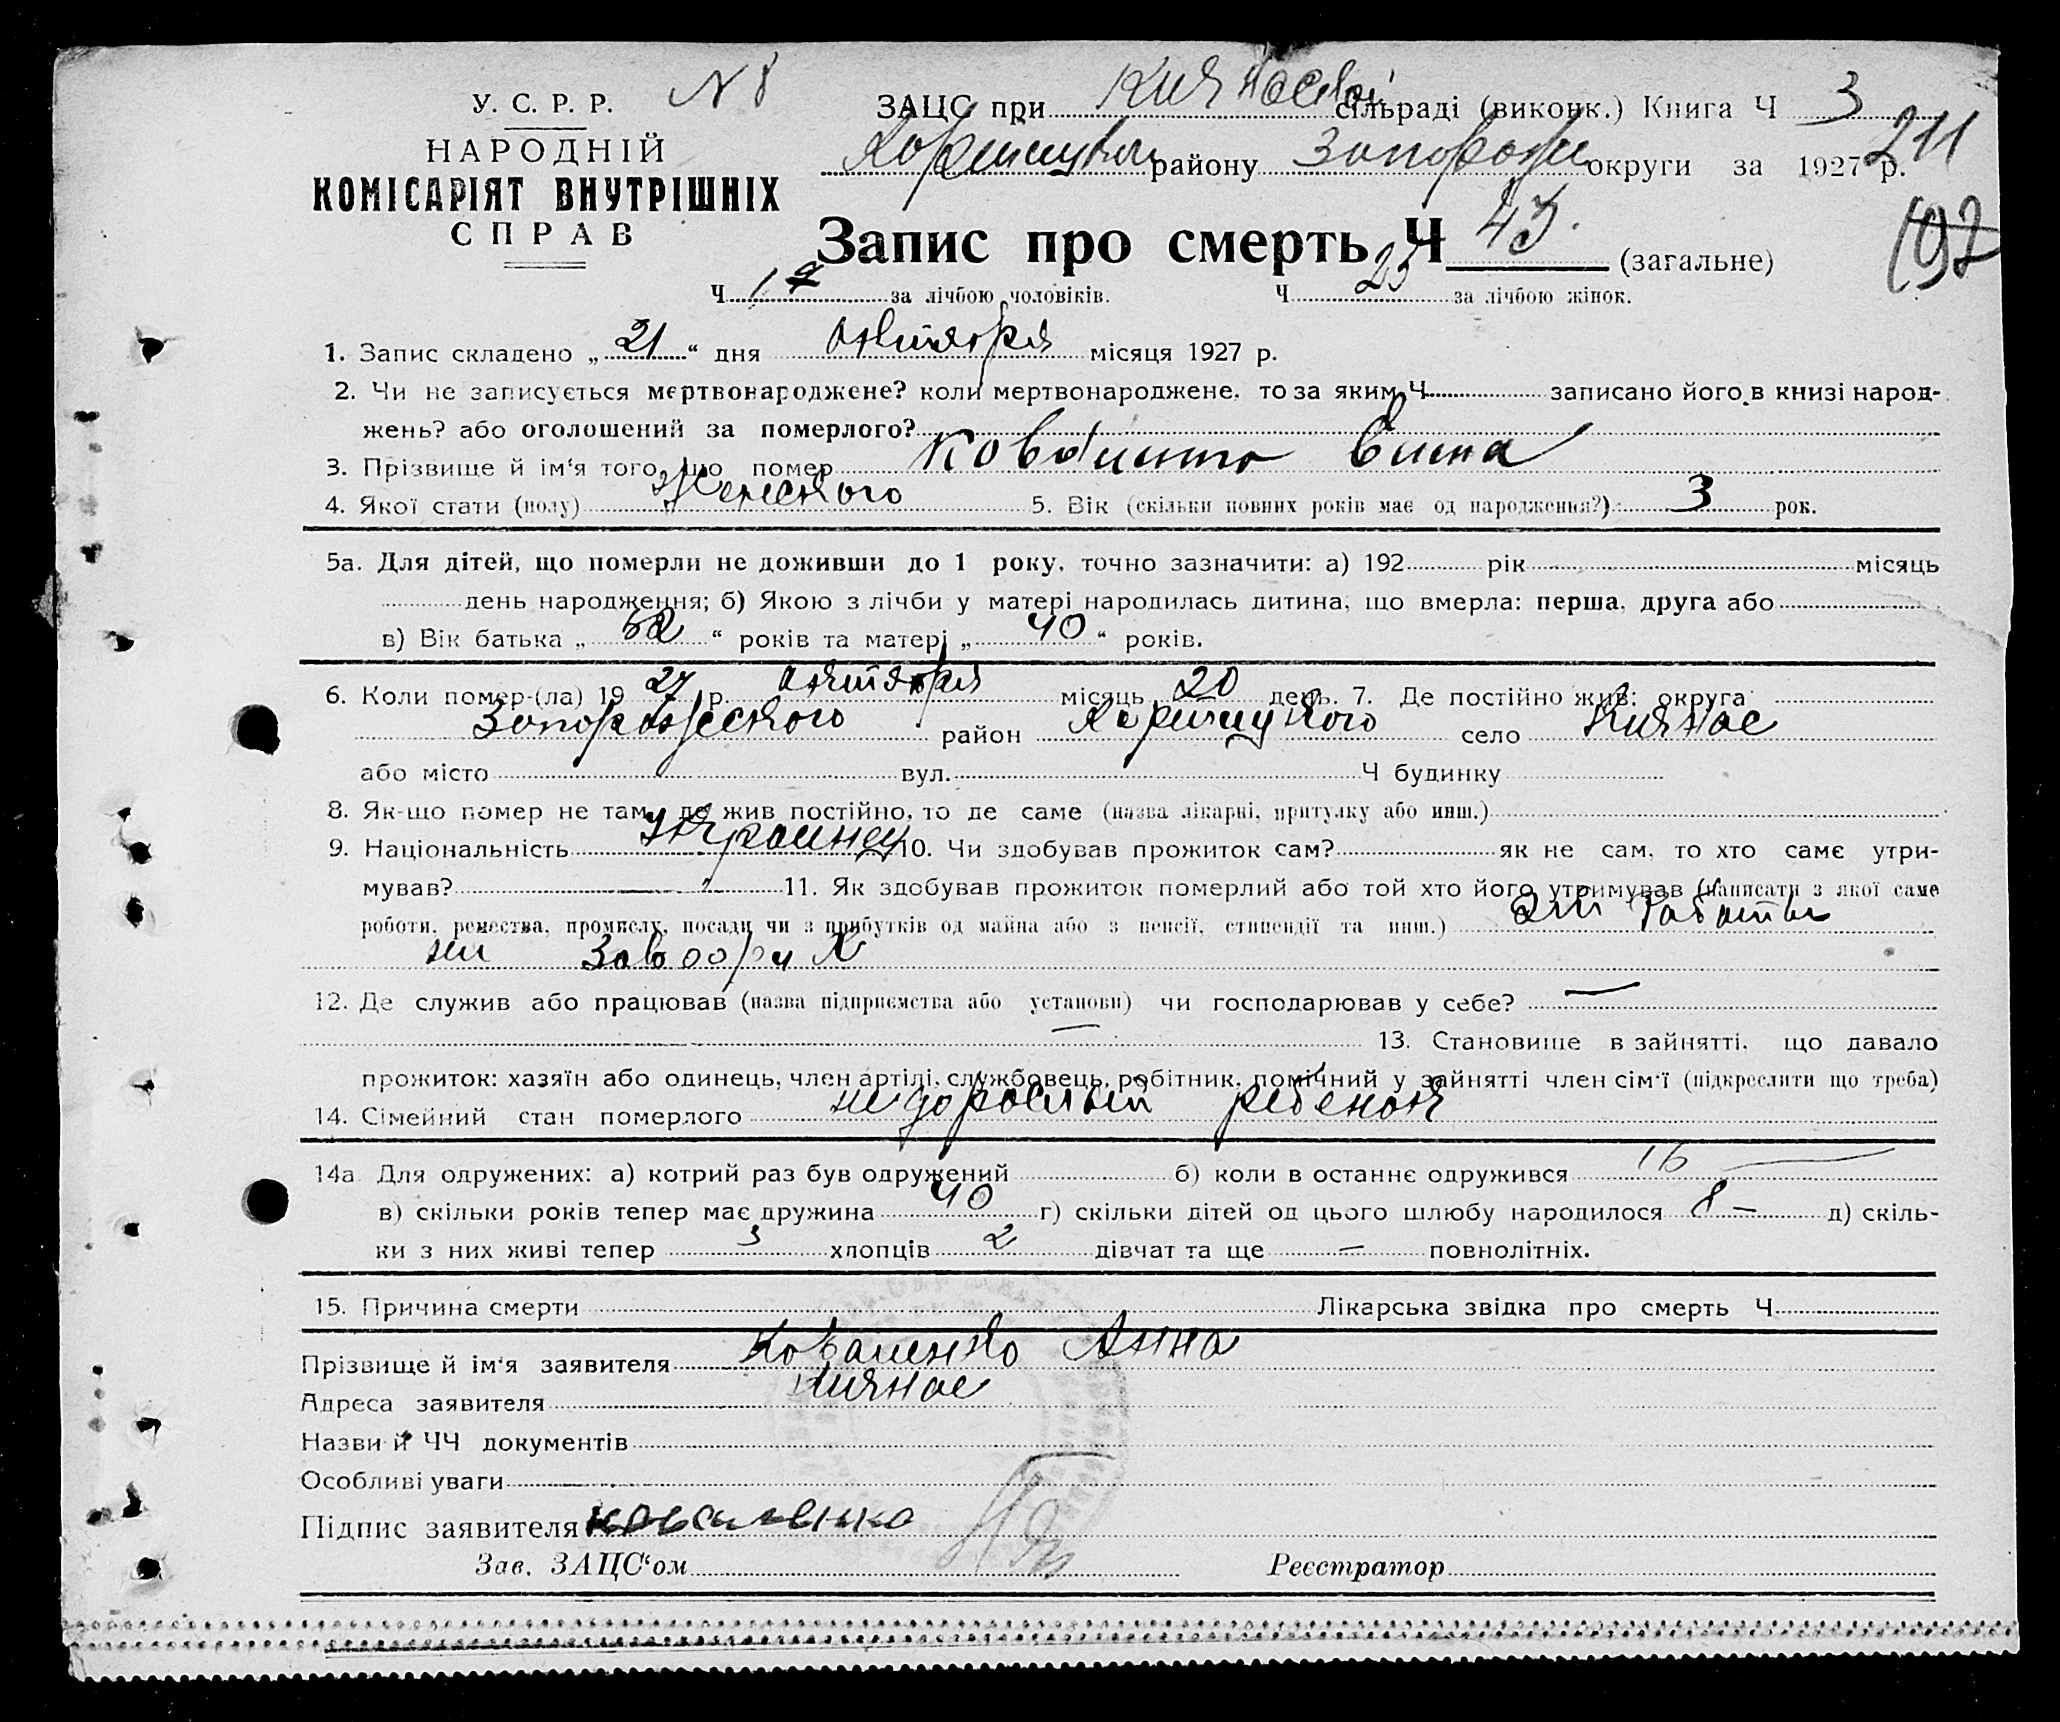 У. С. Р. Р.
НАРОДНІЙ
КОМІСАРІЯТ ВНУТРІШНІХ
СПРАВ
N 8
ЗАЦС при сільраді (виконк.) Книга Ч 3
району округи за 1927 р. 211
Запис про смерть Ч 43. (загальне) 192
Ч за лічбою чоловіків. Ч 25 за лічбою жінок.
1. Запис складено „21“ дня октября місяця 1927 р.
2. Чи не записується мертвонароджене? коли мертвонароджене, то за яким Ч записано його в книзі народ-
жень? або оголошений за померлого?
3. Прізвище й ім‘я того, що помер
4. Якої стати (полу) Женского 5. Вік (скільки повних років має од народження?) 3 рок.
5а. Для дітей, що померли не доживши до 1 року, точно зазначити: а) 192 рік місяць
день народження; б) Якою з лічби у матері народилась дитина, що вмерла: перша, друга або
в) Вік батька „ “ років та матері „40“ років.
6. Коли помер-(ла) 19 27 р. октября місяць 20 день. 7. Де постійно жив: округа
Запорожского район село Кичкас
або місто вул. Ч будинку
8. Як-що помер не там, де жив постійно, то де саме (назва лікарні, притулку або инш.)
9. Національність Украинец 10. Чи здобував прожиток сам? як не сам, то хто саме утри-
мував? 11. Як здобував прожиток померлий або той хто його утримував (написати з якої саме
роботи, ремества, промислу, посади чи з прибутків од майна або з пенсії, стипендії та инш.) работы
12. Де служив або працював (назва підприємства або установи) чи господарював у себе? —
— 13. Становище в зайнятті, що давало
прожиток: хазяїн або одинець, член артілі, службовець, робітник, помічний у зайнятті член сім‘ї (підкреслити що треба)
14. Сімейний стан померлого недорослый ребенок
14а Для одружених: а) котрий раз був одружений б) коли в останнє одружився 16 —
в) скільки років тепер має дружина 40 г) скільки дітей од цього шлюбу народилося 8 — д) скіль-
ки з них живі тепер 3 хлопців 2 дівчат та ще — повнолітніх.
15. Причина смерти Лікарська звідка про смерть Ч
Прізвище й ім‘я заявителя Коваленко Анна
Адреса заявителя Кичкас
Назви й ЧЧ документів
Особливі уваги
Підпис заявителя Коваленко
Зав. ЗАЦС‘ом Реєстратор